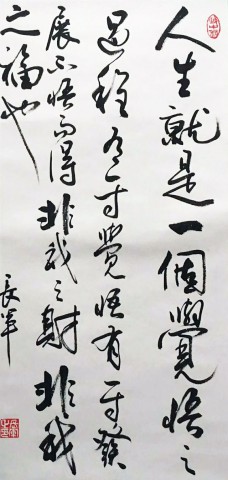 人生就是一個覺悟之
過程有一寸覺悟有一寸發
展不悟而得非我之財非我
之福也
長軍